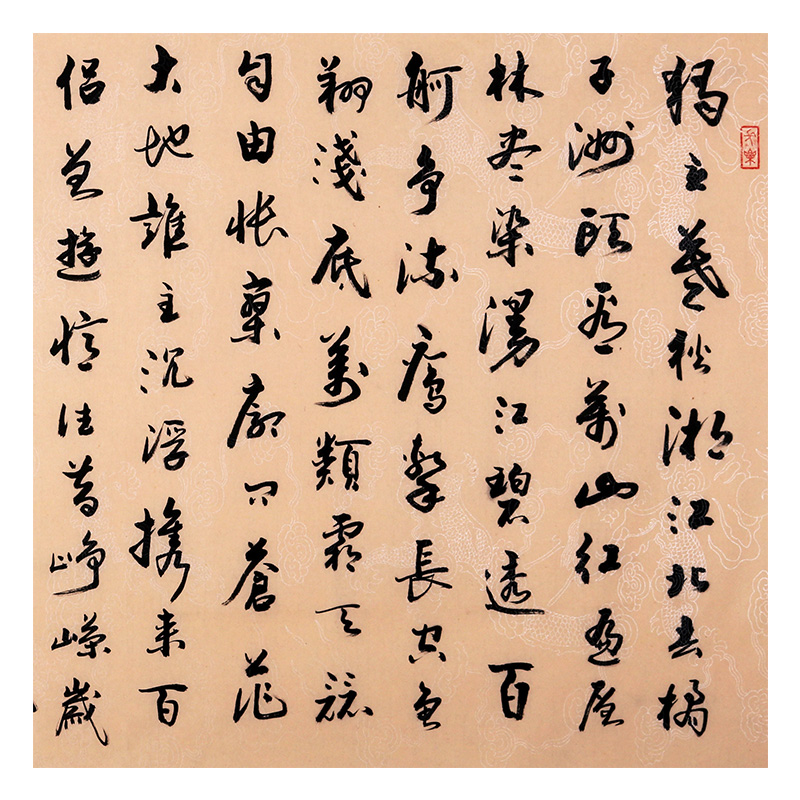 獨立寒秋湘江北去橘
子洲頭看萬山紅遍层
林尽染漫江碧透百
舸爭流鷹擊長空魚
翔淺底萬類霜天競
自由悵寥廓問蒼茫
大地誰主沉浮攜来百
侣曾遊憶往昔崢嶸歲